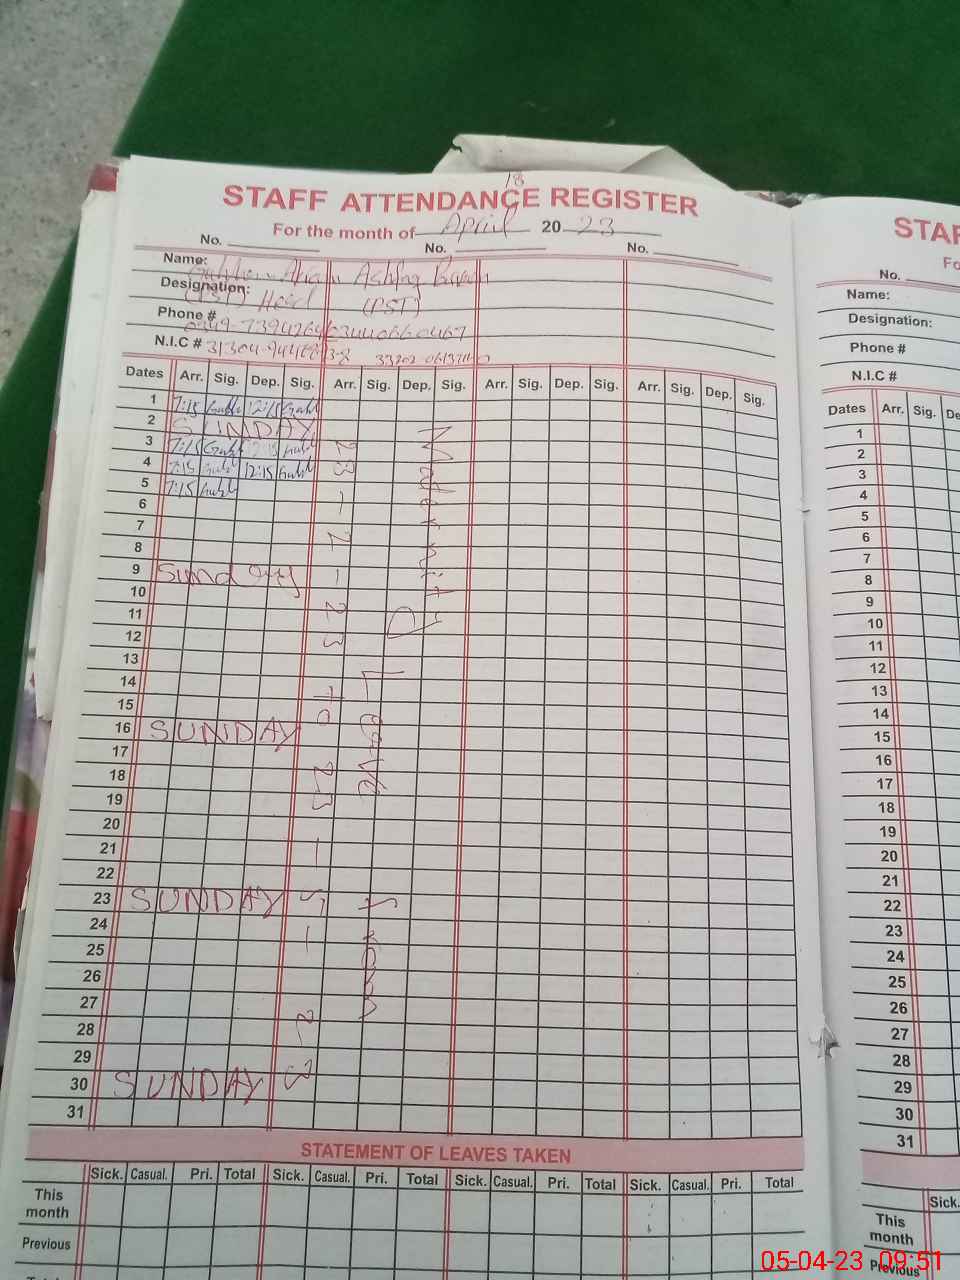 18
STAFF ATTENDANCE REGISTER
For the month of April 2023
No. No. No.
Name:
Designation: (PST) Head (PST)
Phone #
N.I.C #
Dates Arr. Sig. Dep. Sig. Arr. Sig. Dep. Sig. Arr. Sig. Dep. Sig. Arr. Sig. Dep. Sig.
1 7:15 12:15
2 SUNDAY
3 7:15 12:15
4 7:15 12:15
5 7:15
6
7
8
9 Sunday
10
11
12
13
14
15
16 SUNDAY
17
18
19
20
21
22
23 SUNDAY
24
25
26
27
28
29
30 SUNDAY
31
Maternity
Leave from
23-2-23 to 23-5-23
STATEMENT OF LEAVES TAKEN
Sick. Casual. Pri. Total Sick. Casual. Pri. Total Sick. Casual. Pri. Total Sick. Casual. Pri. Total
This
month
Previous
STAF
Fo
No.
Name:
Designation:
Phone #
N.I.C #
Dates Arr. Sig. D
1
2
3
4
5
6
7
8
9
10
11
12
13
14
15
16
17
18
19
20
21
22
23
24
25
26
27
28
29
30
31
Sick.
This
month
Previous
05-04-23 09:51